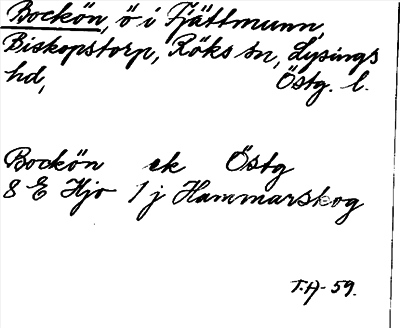 Bockön, ö i Fjättmunn,
Biskopstorp, Röks sn, Lysings
hd, Östg. l.
Bockön ek Östg
8 E Hjo 1 j Hammarskog
T.H-59.